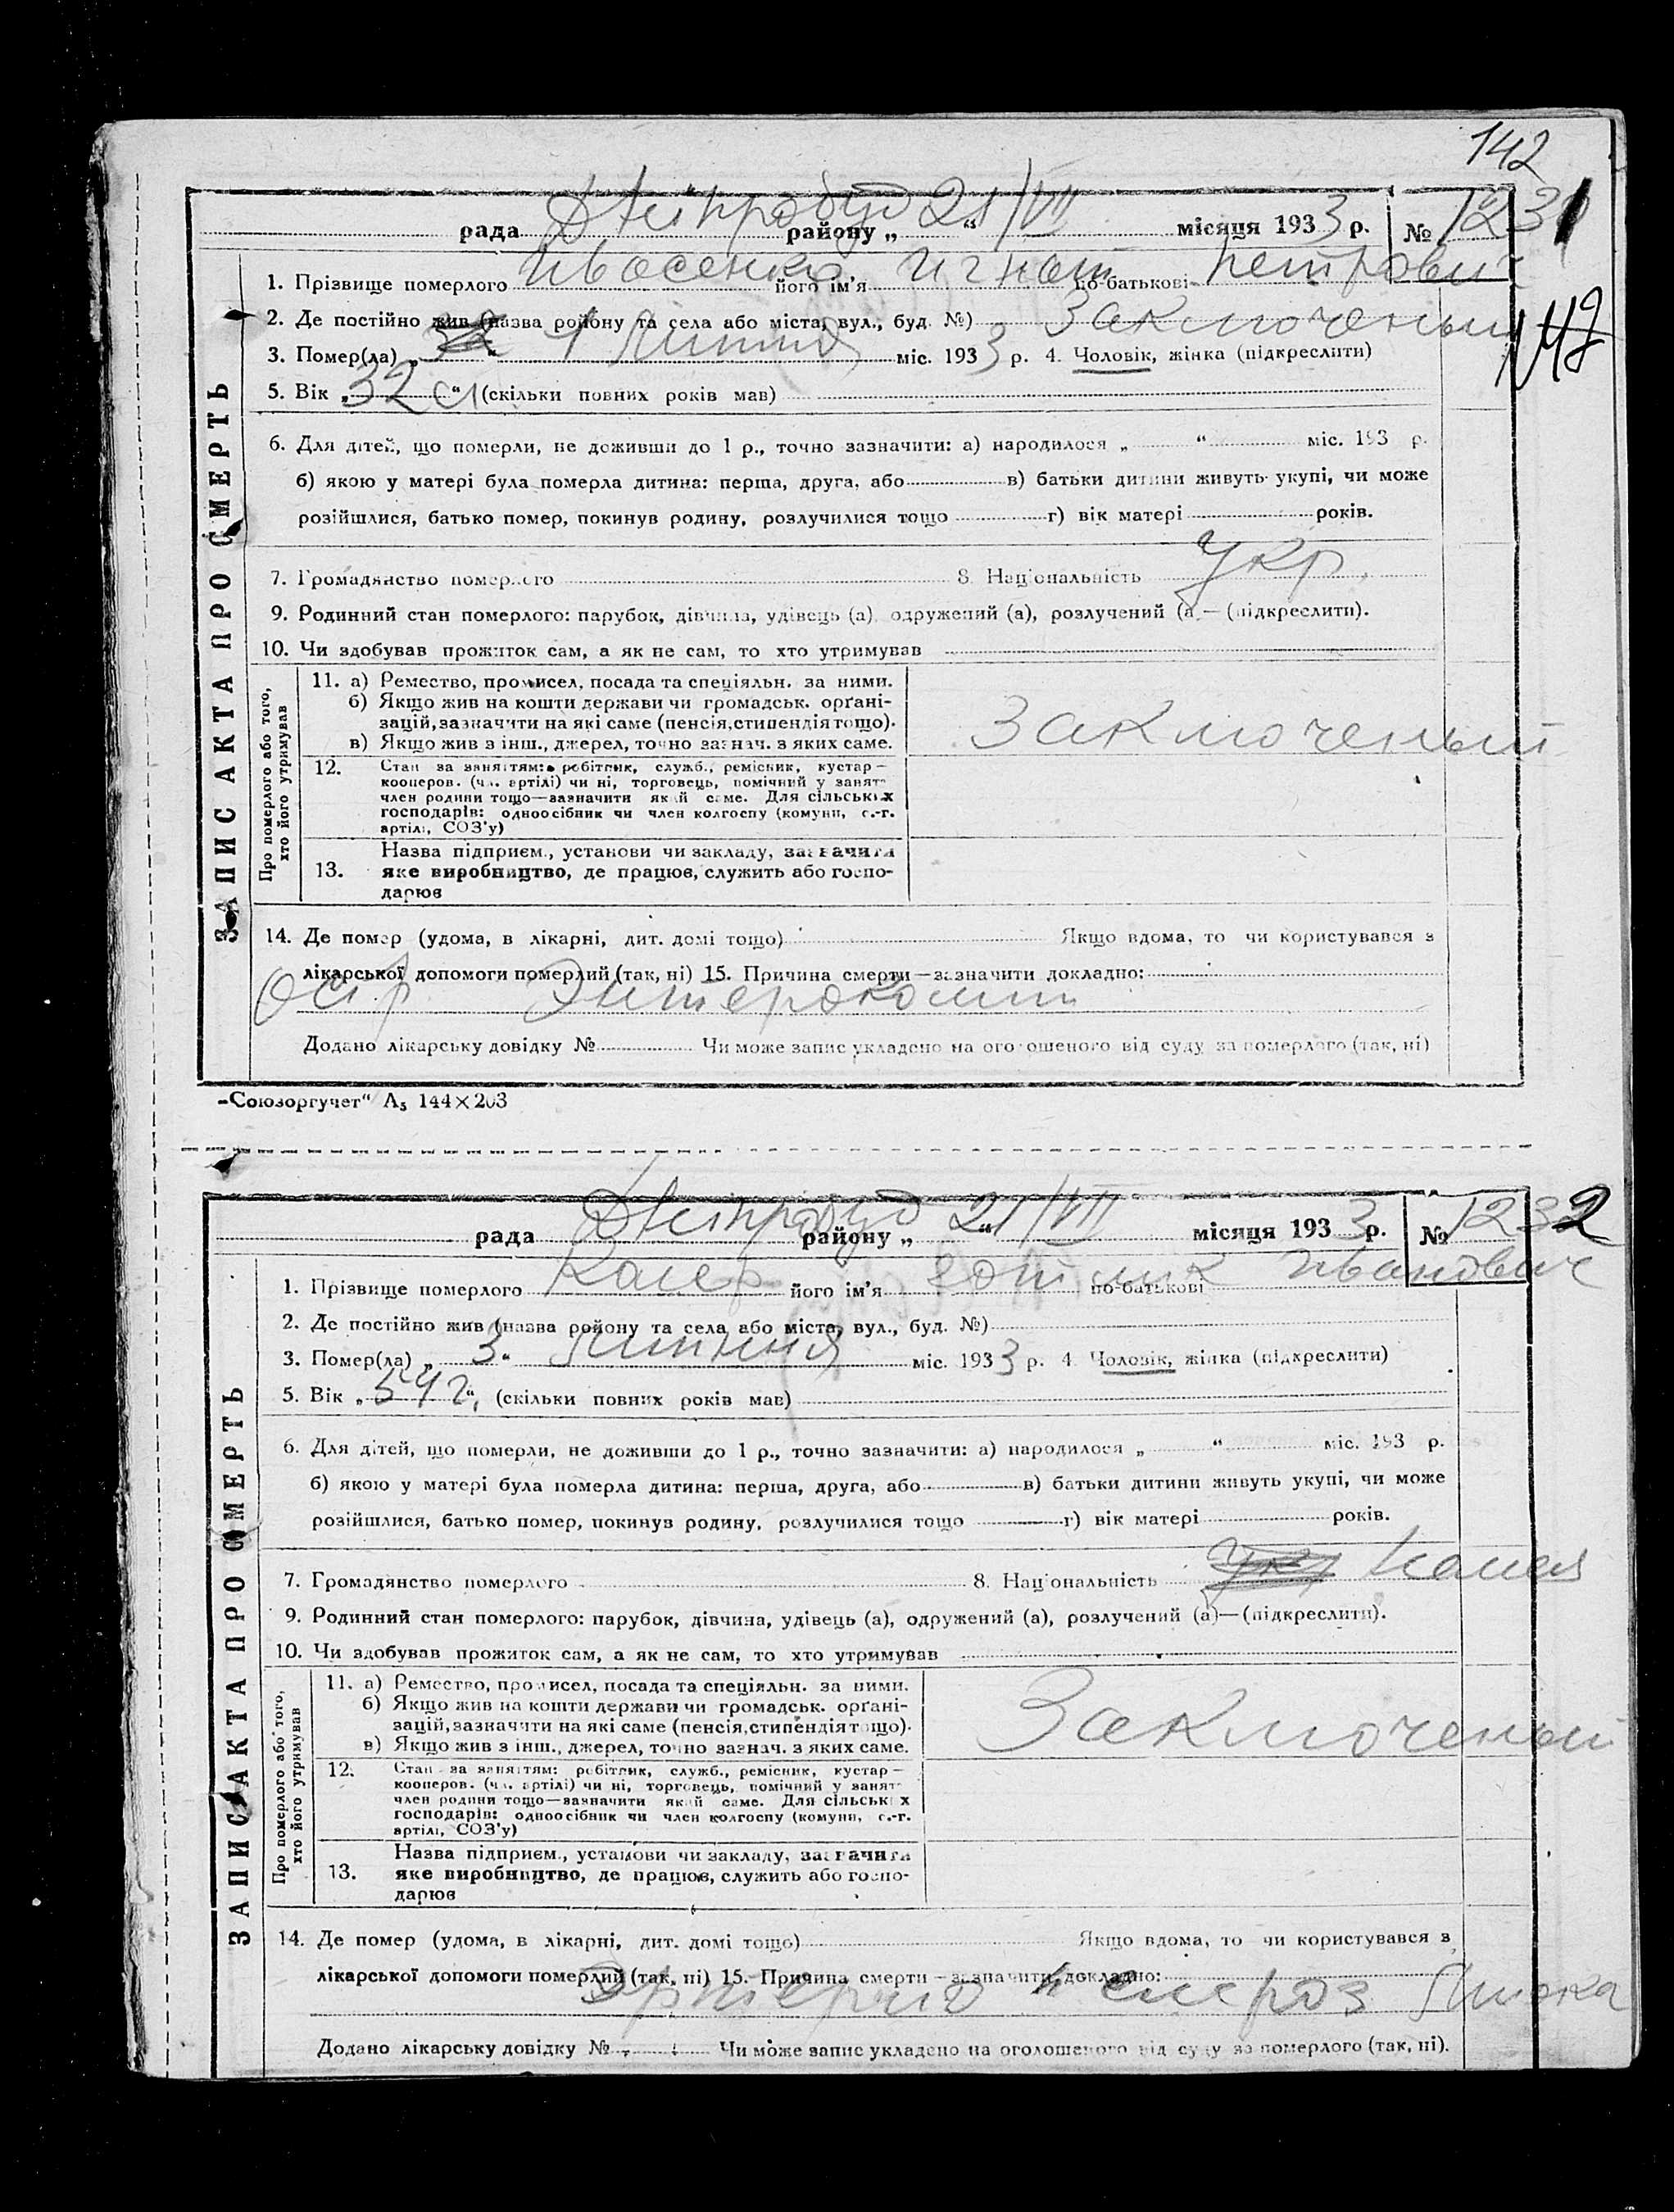 142
рада Дніпробуд району „21/VII“ місяця 1933 р. № 1231
1. Прізвище померлого Ивасенко його ім'я Игнат по-батькові Петрович
2. Де постійно жив (назва ройону та села або міста, вул., буд. №) Заключеный
3. Помер(ла) „ 1 Липня міс. 1933 р. 4. Чоловік, жінка (підкреслити)
147
5. Вік „32“ (скільки повних років мав)
6. Для дітей, що померли, не доживши до 1 р., точно зазначити: а) народилося „ “ міс. 193 р.
б) якою у матері була померла дитина: перша, друга, або в) батьки дитини живуть укупі, чи може
розійшлися, батько помер, покинув родину, розлучилися тощо г) вік матері років.
7. Громадянство померлого 8. Національність укр.
9. Родинний стан померлого: парубок, дівчина, удівець (а), одружений (а), розлучений (а)— (підкреслити).
10. Чи здобував прожиток сам, а як не сам, то хто утримував
ЗАПИС АКТА ПРО СМЕРТЬ
Про померлого або того,
хто його утримував
11. а) Ремество, промисел, посада та спеціяльн. за ними.
б) Якщо жив на кошти держави чи громадськ. орґані-
зацій, зазначити на які саме (пенсія, стипендія тощо).
в) Якщо жив з інш., джерел, точно зазнач. з яких саме.
Заключеный
12. Стан за заняттям: робітник, служб., ремісник, кустар—
кооперов. (чл. артілі) чи ні, торговець, помічний у занят-
член родини тощо—зазначити який саме. Для сільських
господарів: одноосібник чи член колгоспу (комуни, с.-г.
артілі, СОЗ'у)
13. Назва підприєм., установи чи закладу, зазначити
яке виробництво, де працює, служить або госпо-
дарює
14. Де помер (удома, в лікарні, дит. домі тощо) Якщо вдома, то чи користувався з
лікарської допомоги померлий (так, ні) 15. Причина смерти—зазначити докладно:
Энтероколит
Додано лікарську довідку № Чи може запис укладено на оголошеного від суду за померлого (так, ні)
„Союзоргучет“ А5 144×203
рада Дніпробуд району „21/VII“ місяця 1933 р. № 1232
1. Прізвище померлого його ім'я по-батькові Иванович
2. Де постійно жив (назва ройону та села або міста, вул., буд. №)
3. Помер(ла) „3“ Липня міс. 1933 р. 4. Чоловік, жінка (підкреслити)
5. Вік „54 г“, (скільки повних років мав)
6. Для дітей, що померли, не доживши до 1 р., точно зазначити: а) народилося „ “ міс. 193 р.
б) якою у матері була померла дитина: перша, друга, або в) батьки дитини живуть укупі, чи може
розійшлися, батько помер, покинув родину, розлучилися тощо г) вік матері років.
7. Громадянство померлого 8. Національність укр
9. Родинний стан померлого: парубок, дівчина, удівець (а), одружений (а), розлучений (а)—(підкреслити).
10. Чи здобував прожиток сам, а як не сам, то хто утримував
ЗАПИС АКТА ПРО СМЕРТЬ
Про померлого або того,
хто його утримував
11. а) Ремество, промисел, посада та спеціяльн. за ними.
б) Якщо жив на кошти держави чи громадськ. орґані-
зацій, зазначити на які саме (пенсія, стипендія тощо).
в) Якщо жив з інш., джерел, точно зазнач. з яких саме.
Заключеный
12. Стан за заняттям: робітник, служб., ремісник, кустар—
кооперов. (чл. артілі) чи ні, торговець, помічний у занят-
член родини тощо—зазначити який саме. Для сільських
господарів: одноосібник чи член колгоспу (комуни, с.-г.
артілі, СОЗ'у)
13. Назва підприєм., установи чи закладу, зазначити
яке виробництво, де працює, служить або госпо-
дарює
14. Де помер (удома, в лікарні, дит. домі тощо) Якщо вдома, то чи користувався з
лікарської допомоги померлий (так, ні) 15. Причина смерти—зазначити докладно:
Додано лікарську довідку № Чи може запис укладено на оголошеного від суду за померлого (так, ні).